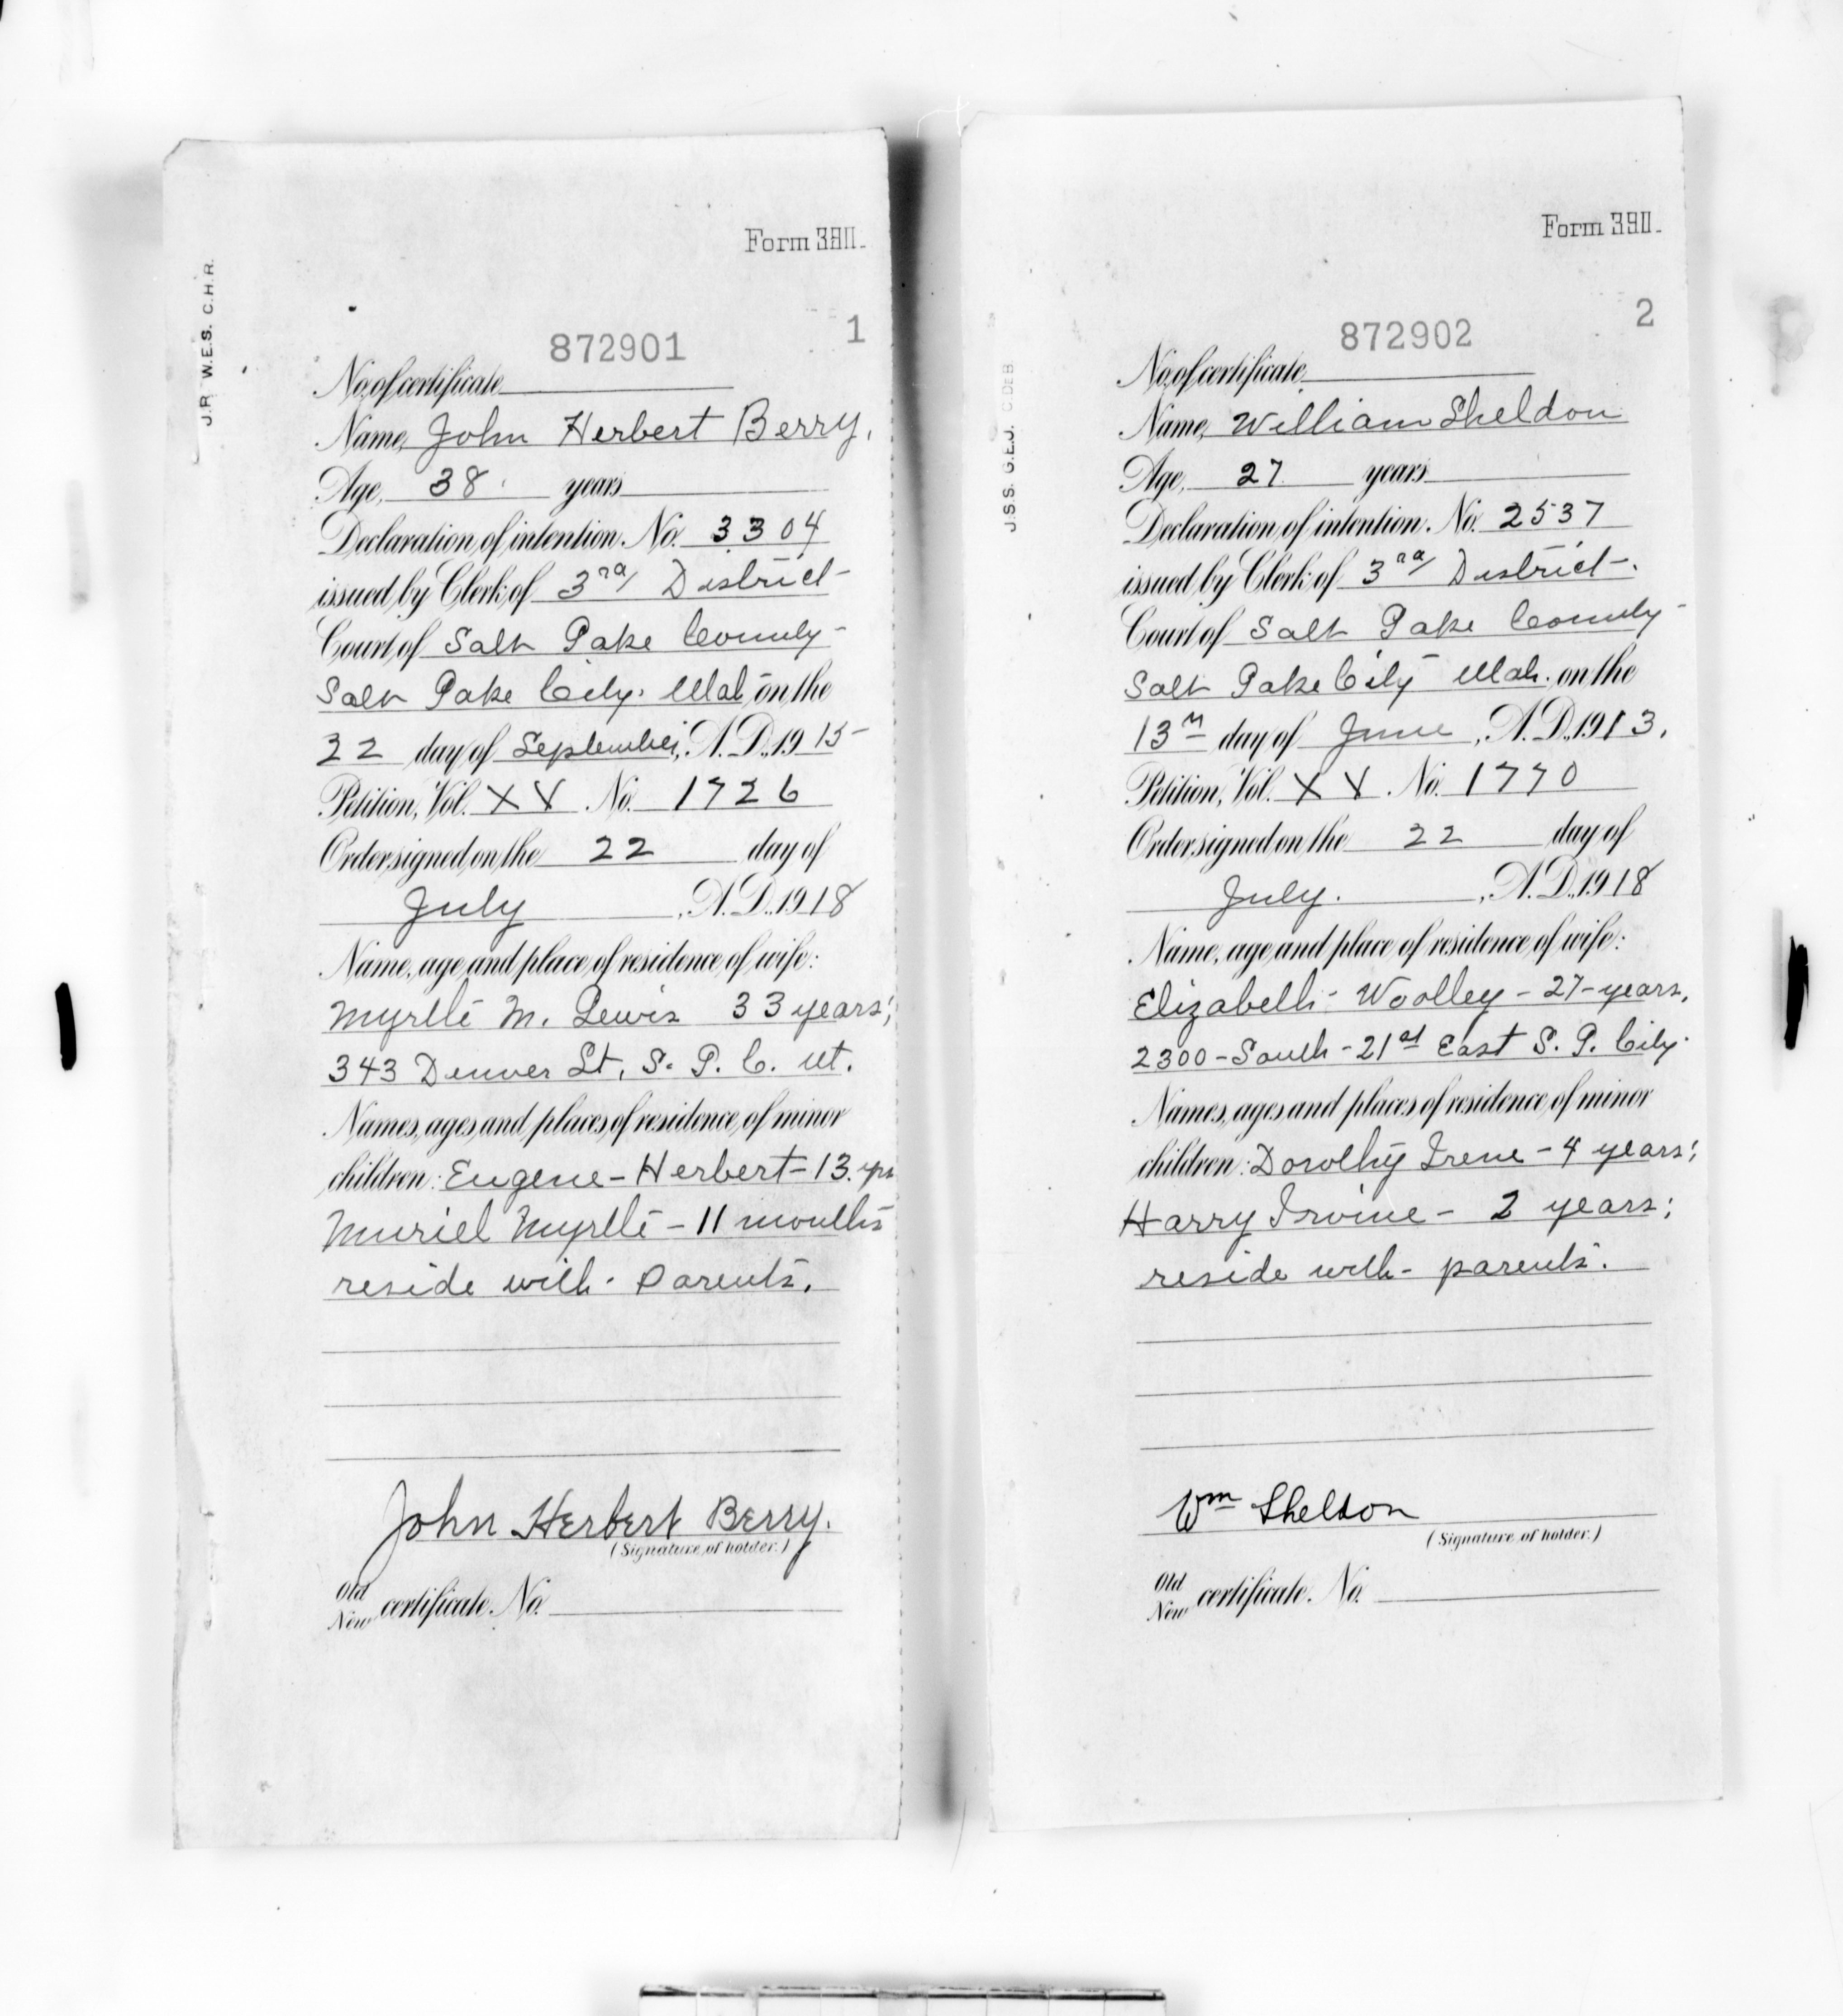 J.R. W.E.S. C.H.R.
Form 3911.
872901
1
No. of certificate
Name, John Herbert Berry.
Age, 38 years
Declaration of intention. No. 3304
issued by Clerk of 3rd District
Court of Salt Lake County
Salt Lake City. Utah on the
22 day of September, A. D., 1915
Petition, Vol. XV No. 1726
Order signed on the 22 day of
July, A. D., 1918
Name, age and place of residence of wife:
Myrtle M. Lewis 33 years;
343 Denver St, S. L. C. Ut.
Names, ages and places of residence of minor
children: Eugene - Herbert - 13. yrs
Muriel Myrtle - 11 months
reside with - Parents.
John Herbert Berry.
(Signature of holder.)
Old
New certificate. No.
J.S.S. G.E.J. C.DEB
Form 3911.
872902
2
No. of certificate,
Name, William Sheldon
Age, 27 years
Declaration of intention. No. 2537
issued by Clerk of 3rd District.
Court of Salt Lake County
Salt Lake City Utah. on the
13th day of June, A. D., 1913.
Petition, Vol. XV No. 1770
Order signed on the 22 day of
July. , A. D., 1918
Name, age and place of residence of wife:
Elizabeth - Woolley - 27 - years,
2300 - South - 21st East S. L. City.
Names, ages and places of residence of minor
children: Dorothy Irene - 4 years;
Harry Irvine - 2 years;
reside with - parents.
Wm Sheldon
(Signature of holder.)
Old
New certificate. No.